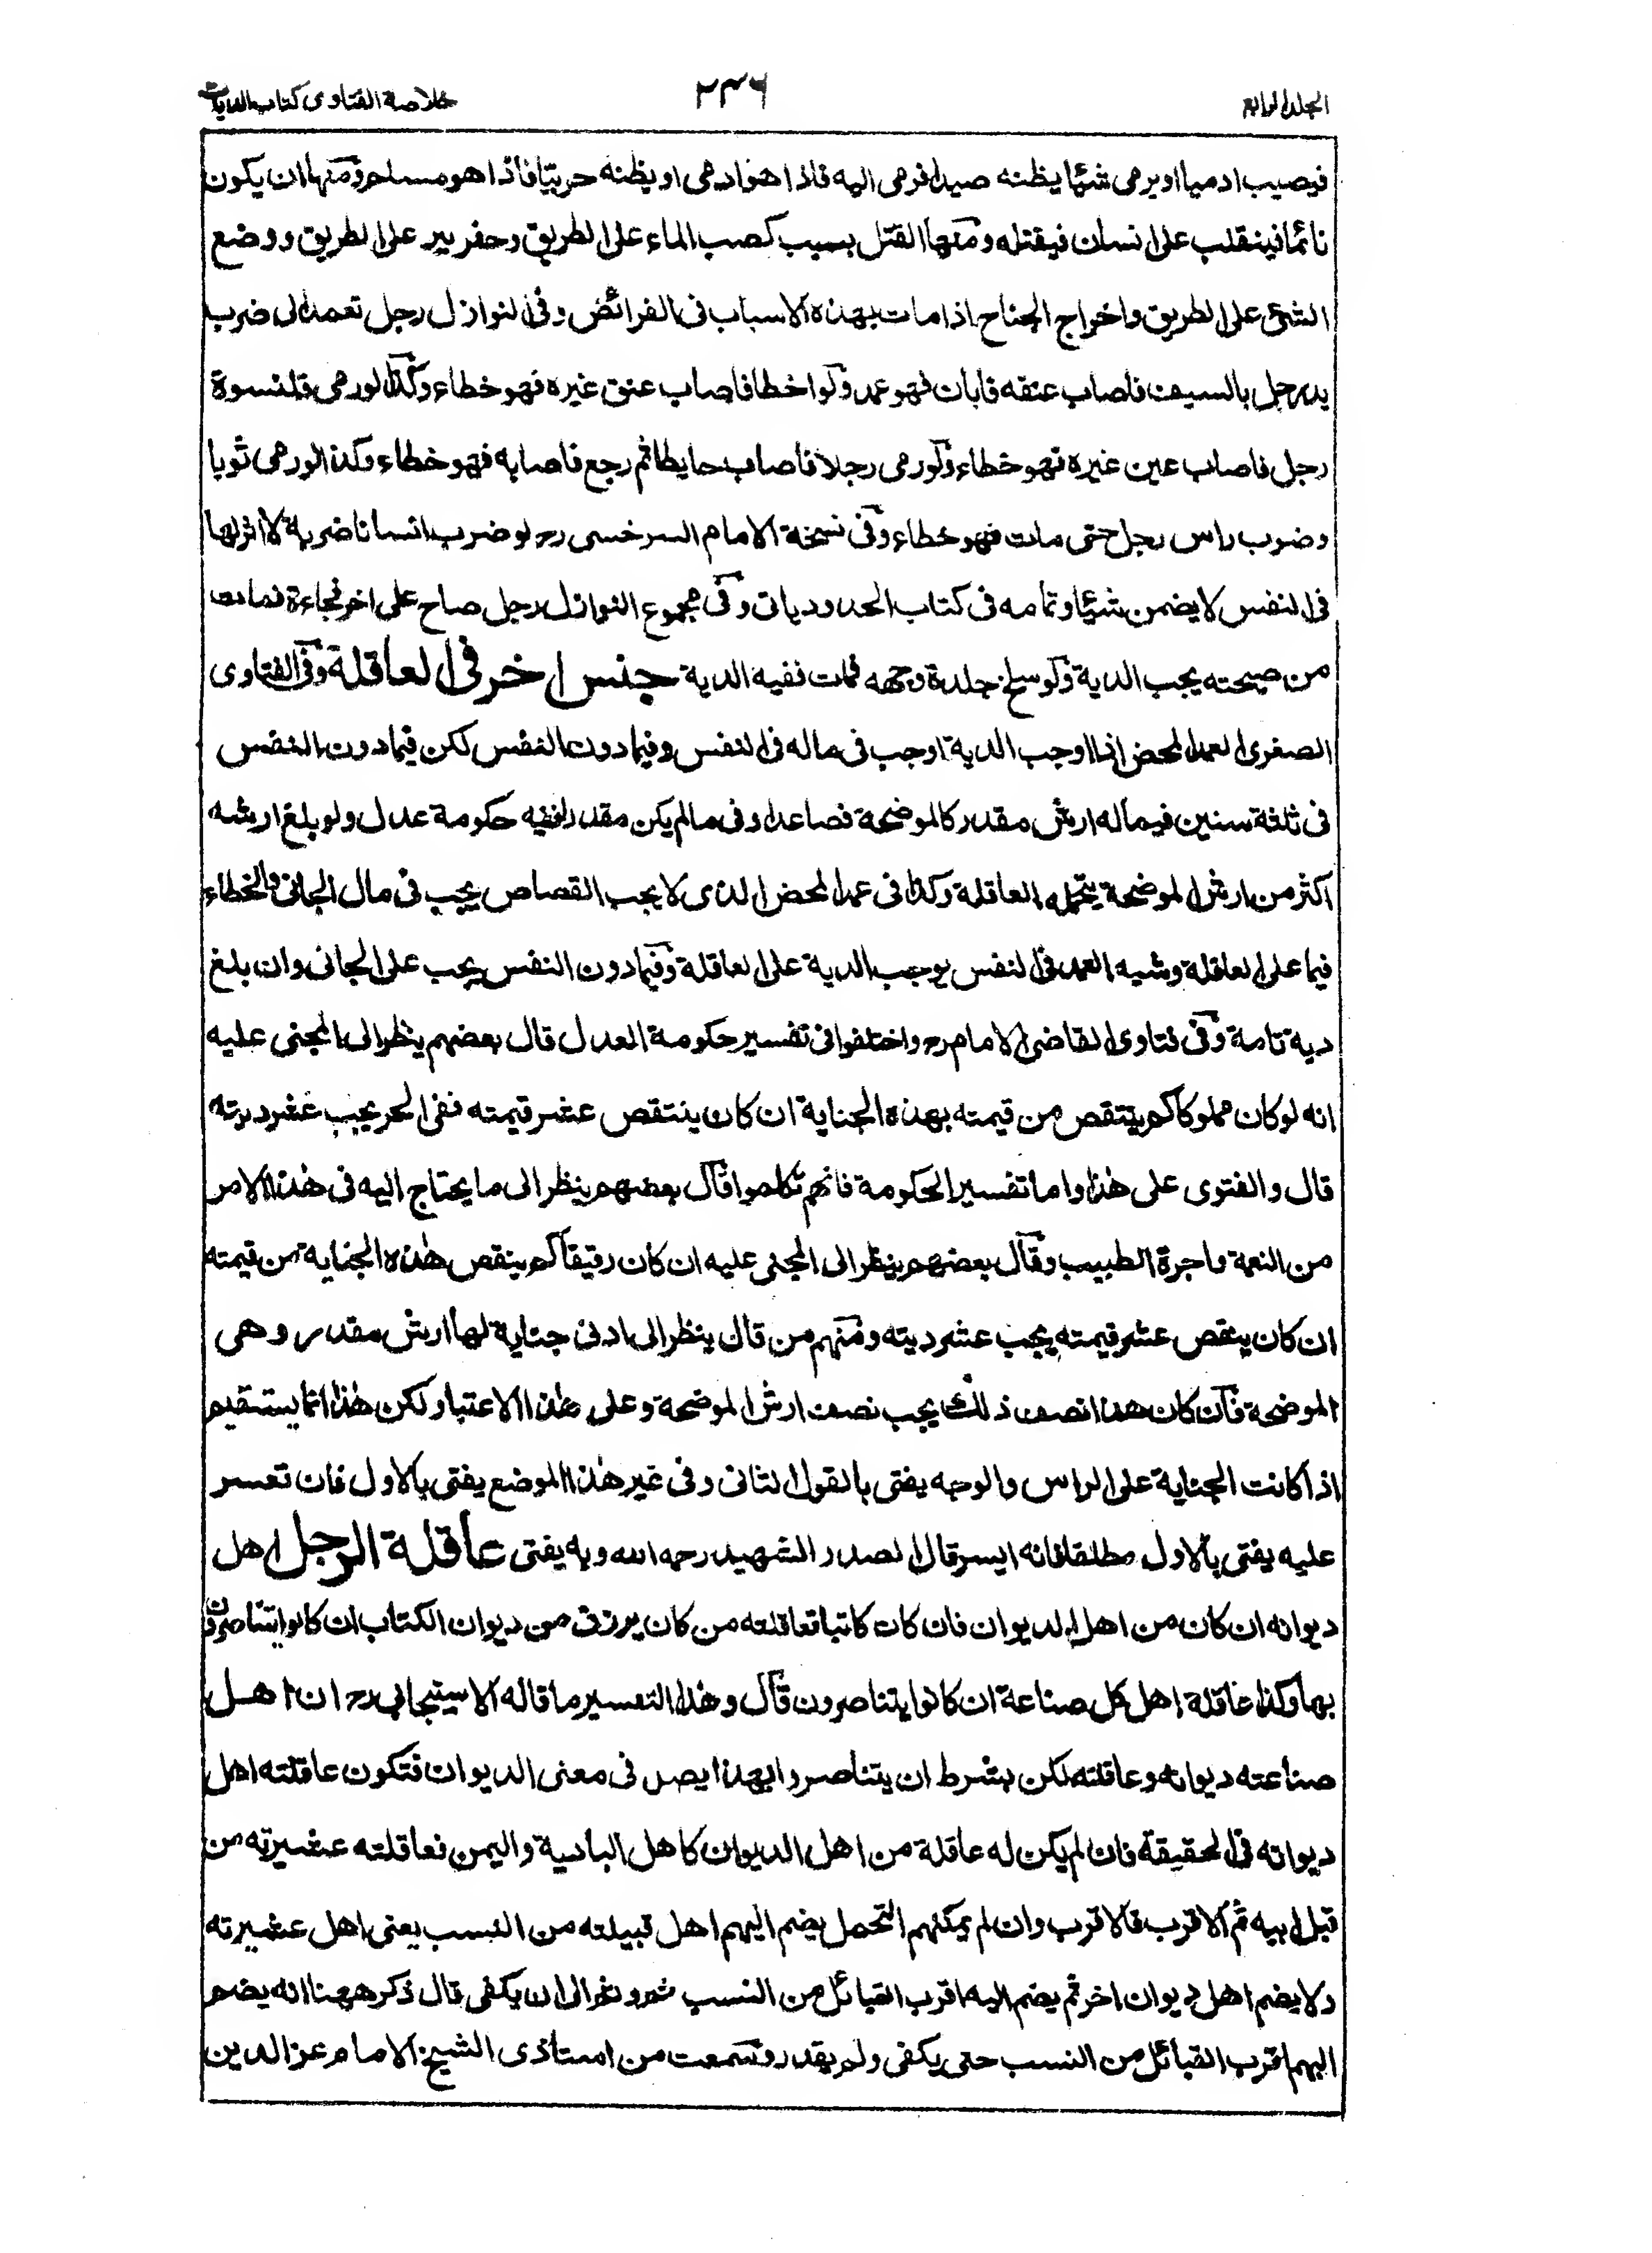 الجلد الرابع
٢٣٦
خلاصة الفتاوى كتاب الديات
فيصيب ادميا او يرمى شيئا يظنه صيدا فرمى اليه فاذا هو ادمى او يظنه حربيا فاذا هو مسلم ومنها ان يكون
نائما فينقلب على انسان فيقتله ومنها القتل بسبب كصب الماء على الطريق وحفر بير على الطريق ووضع
الشئ على الطريق واخراج الجناح اذا مات بهذه الاسباب فى الفرائض وفى النوازل رجل تعمد الى ضرب
يد رجل بالسيف فاصاب عنقه فابان فهو عمد ولو اخطا فاصاب عنق غيره فهو خطاء وكذا لو رمى قلنسوة
رجل فاصاب عين غيره فهو خطاء ولو رمى رجلا فاصاب حايطا ثم رجع فاصابه فهو خطاء وكذا لو رمى ثوبا
وضرب راس رجل حتى مات فهو خطاء وفى نسخة الامام السرخسى رح لو ضرب انسانا ضربة لا اثر لها
فى النفس لا يضمن شيئا وتمامه فى كتاب الحدود ياتى وفى مجموع النوازل رجل صاح على اخر فجاءة فمات
من صيحته يجب الدية ولو سلخ جلدة وجهه فمات ففيه الدية جنس اخر فى العاقلة وفى الفتاوى
الصغرى العمد المحض اذا اوجب الدية اوجب فى ماله فى النفس وفيما دون النفس لكن فيما دون النفس
فى ثلثة سنين فيما له ارش مقدر كالموضحة فصاعدا وفى ما لم يكن مقدر ففيه حكومة عدل ولو بلغ ارشه
اكثر من ارش الموضحة يتحمله العاقلة وكذا فى عمد المحض الذى لا يجب القصاص يجب فى مال الجانى والخطاء
فيما على العاقلة وشبه العمد فى النفس يوجب الدية على العاقلة وفيما دون النفس يجب على الجانى وان بلغ
دية تامة وفى فتاوى القاضى الامام رح واختلفوا فى تفسير حكومة العدل قال بعضهم ينظر الى المجنى عليه
انه لو كان مملوكا كم ينتقص من قيمته بهذه الجناية ان كان ينتقص عشر قيمته ففى الحر يجب عشر ديته
قال والفتوى على هذا واما تفسير الحكومة فانهم تكلموا قال بعضهم ينظر الى ما يحتاج اليه فى هذا الامر
من النعمة واجرة الطبيب وقال بعضهم ينظر الى المجنى عليه ان كان رقيقا كم ينقص هذه الجناية من قيمته
ان كان ينقص عشر قيمته يجب عشر ديته ومنهم من قال ينظر الى ادنى جناية لها ارش مقدر وهى
الموضحة فان كان هذا نصف ذلك يجب نصف ارش الموضحة وعلى هذا الاعتبار لكن هذا انما يستقيم
اذا كانت الجناية على الراس والوجه يفتى بالقول الثانى وفى غير هذا الموضع يفتى بالاول فان تعسر
عليه يفتى بالاول مطلقا فانه ايسر قال الصدر الشهيد رحمه الله وبه يفتى عاقلة الرجل اهل
ديوانه ان كان من اهل الديوان فان كان كاتبا فعاقلته من كان يرزق من ديوان الكتاب ان كانوا يتناصرون
بها وكذا عاقلة اهل كل صناعة ان كانوا يتناصرون قال وهذا التفسير ما قاله الاسبيجابى رح ان اهل
صناعته ديوانه وعاقلته لكن بشرط ان يتناصروا بهذا يصل فى معنى الديوان فتكون عاقلته اهل
ديوانه فى الحقيقة فان لم يكن له عاقلة من اهل الديوان كاهل البادية واليمن فعاقلته عشيرته من
قبل ابيه ثم الاقرب فالاقرب وان لم يمكنهم التحمل يضم اليهم اهل قبيلته من النسب يعنى اهل عشيرته
ولا يضم اهل ديوان اخر ثم يضم اليه اقرب القبائل من النسب الى ان يكفى قال ذكر ههنا انه يضم
اليهم اقرب القبائل من النسب حتى يكفى ولم يقدر وسمعت من استاذى الشيخ الامام عز الدين